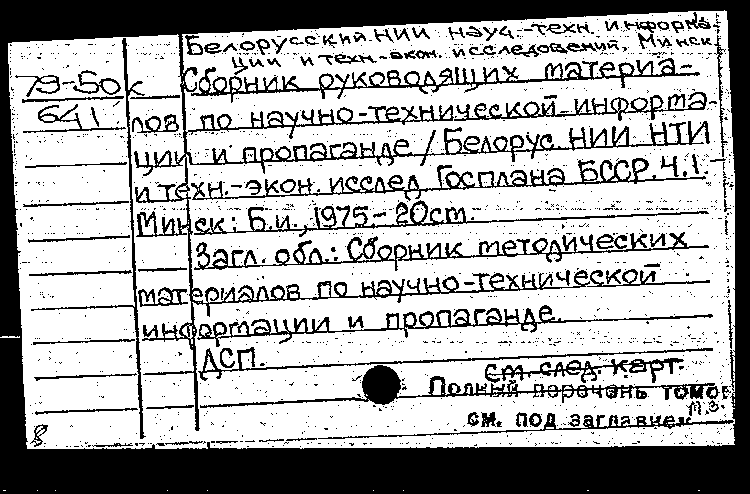 Белорусский НИИ науч.-техн. информа-
ции и техн.-экон. исследований. Минск
79-50к Сборник руководящих материа-
641 лов по научно-технической информа-
ции и пропаганде / Белорус. НИИ НТИ
и техн.-экон. исслед. Госплана БССР. Ч.1.
Минск: Б.и., 1975.- 20см.
Загл. обл.: Сборник методических
материалов по научно-технической
информации и пропаганде.
ДСП.
см. след. карт.
Полный перечень томов
см. под заглавием
8